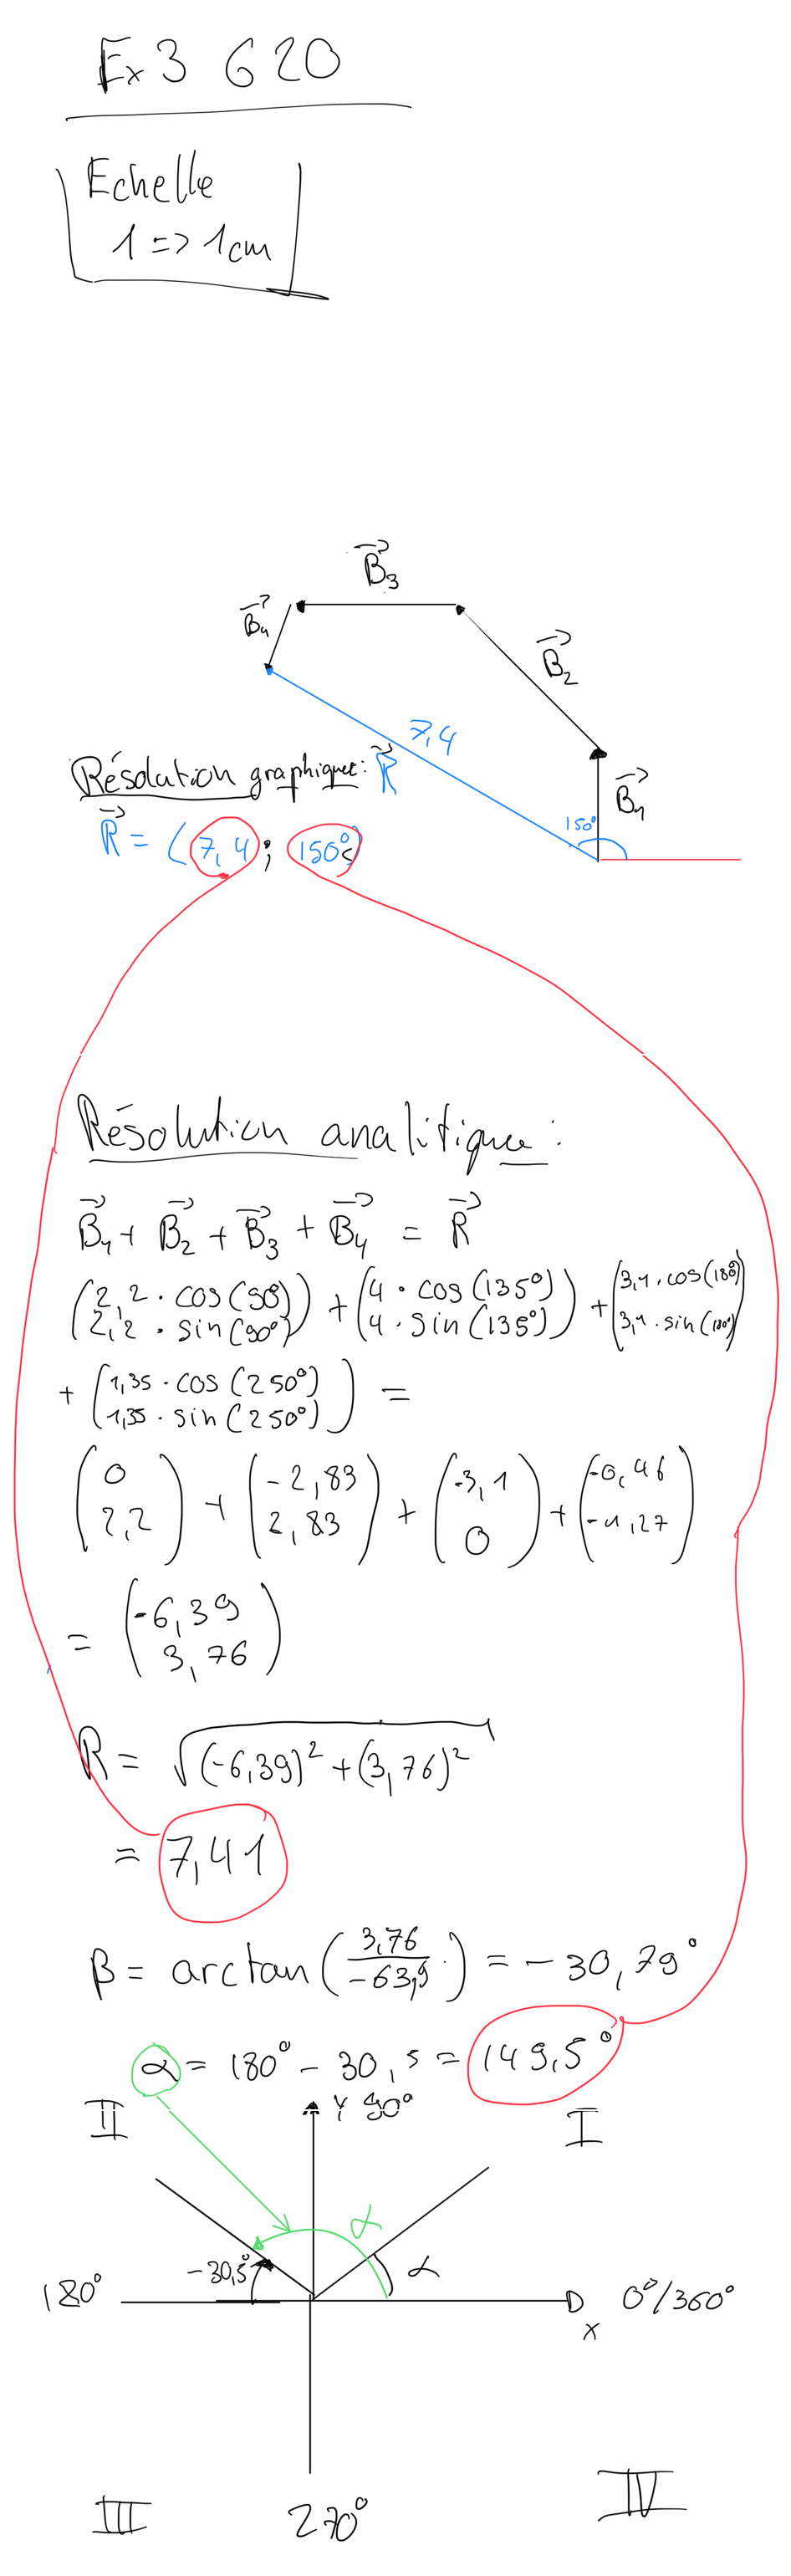 Ex 3 G20
Echelle
1 => 1cm
B₃
B₄
B₂
7,4
Résolution graphique: R
B₁
150°
R = (7,4 ; 150°)
Résolution analitique :
B₁ + B₂ + B₃ + B₄ = R
(2,2 · cos(90°)) + (4 · cos(135°)) + (3,1 · cos(180°))
(2,2 · sin(90°)) (4 · sin(135°)) (3,1 · sin(180°))
+ (1,35 · cos(250°)) =
(1,35 · sin(250°))
(0) + (-2,83) + (-3,1) + (-0,46)
(2,2) (2,83) (0) (-1,27)
= (-6,39)
(3,76)
R = √(-6,39)² + (3,76)²
= 7,41
β = arctan(3,76/-63,9) = -30,79°
α = 180° - 30,5 = 149,5°
II
Y 90°
I
α
-30,5°
α
180°
0°/360°
x
III
270°
IV